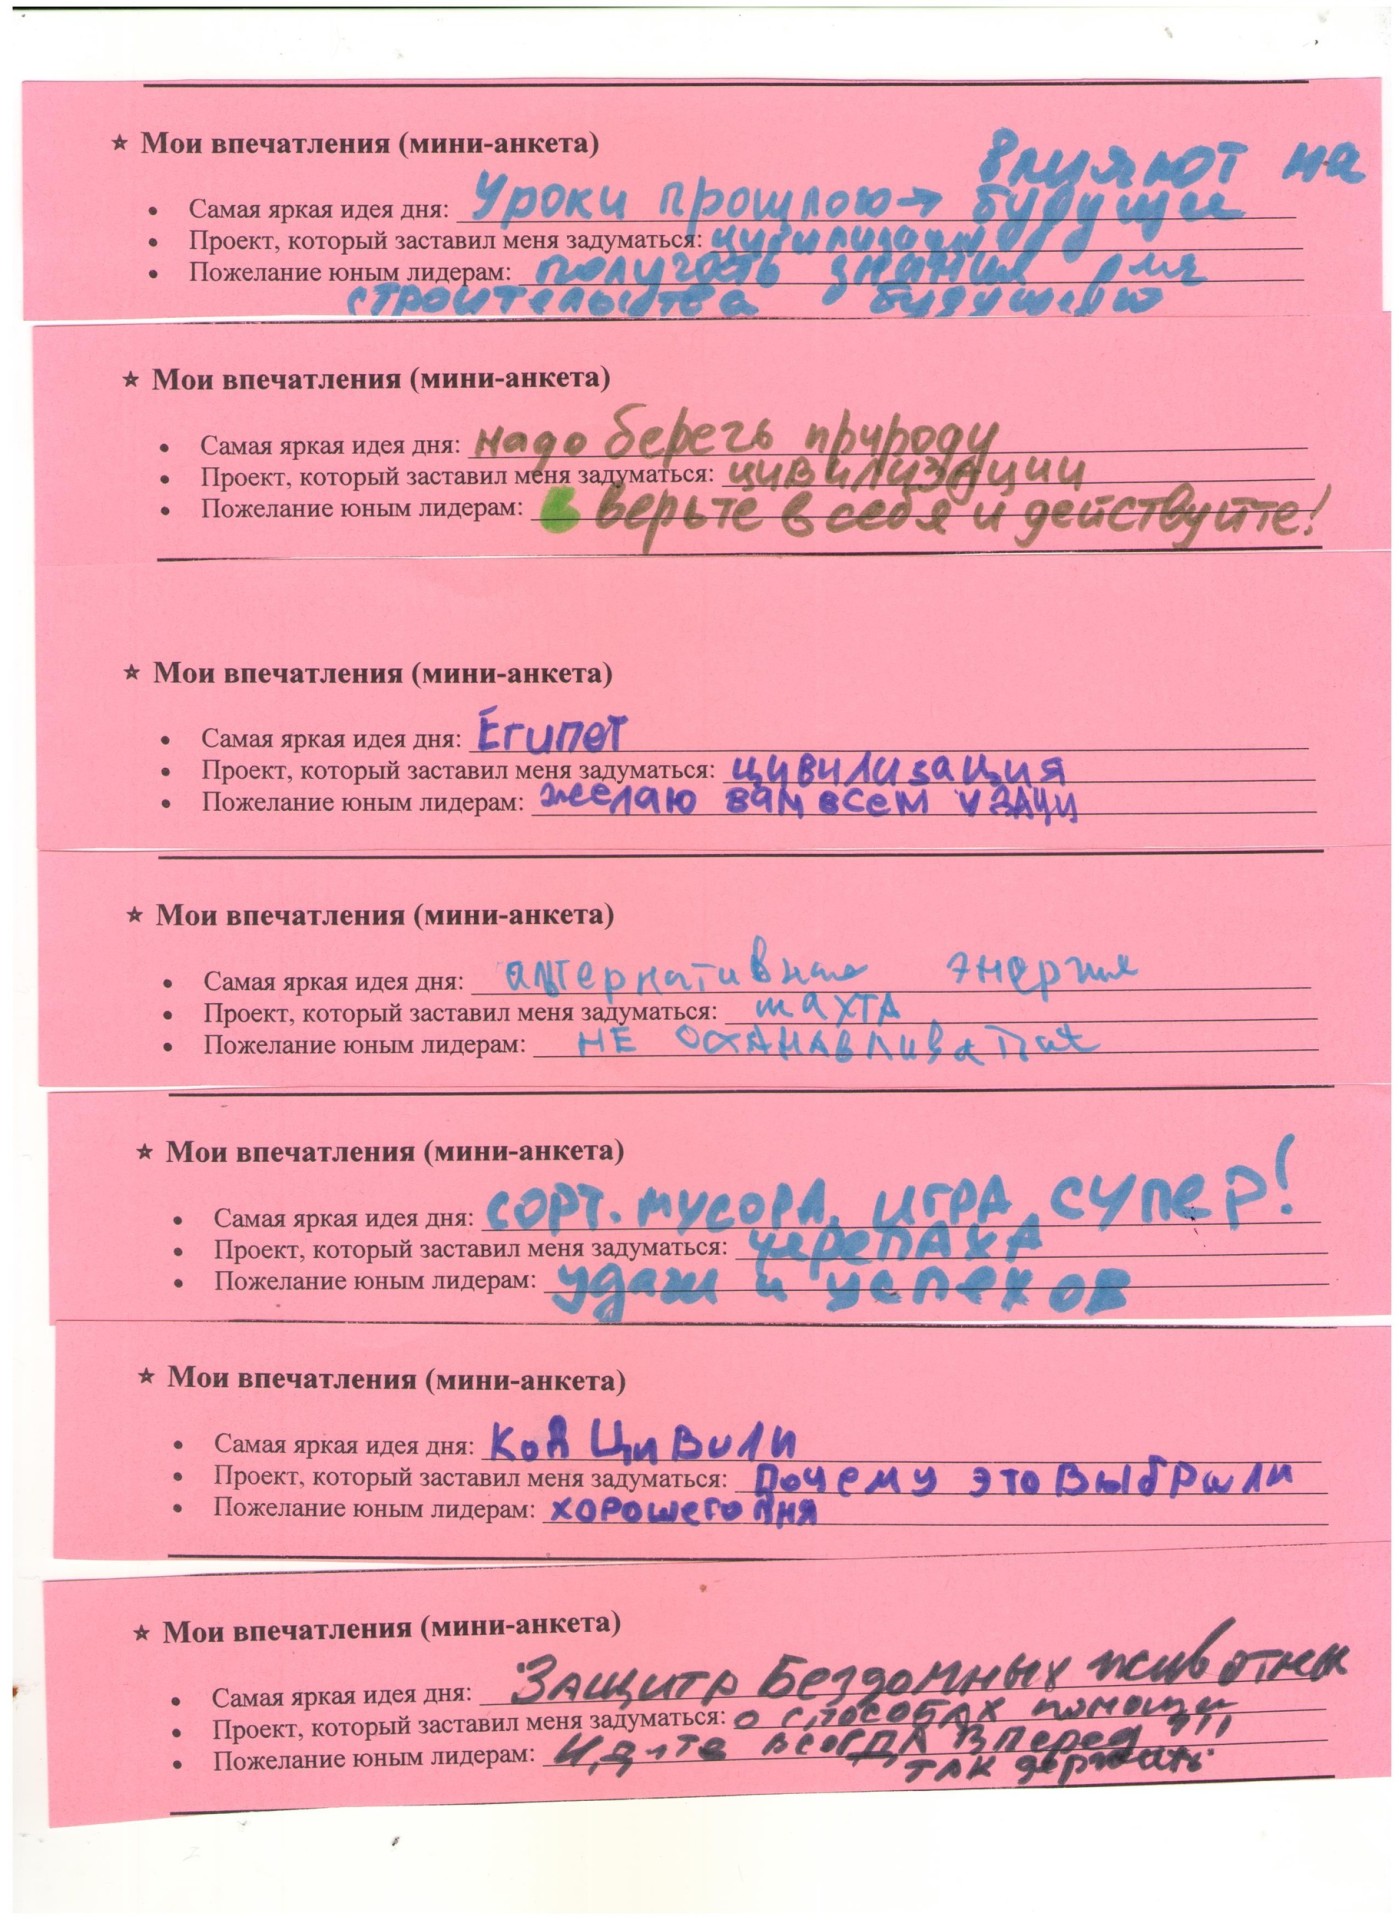 ★ Мои впечатления (мини-анкета)
влияют на
• Самая яркая идея дня: Уроки прошлого → будущее
• Проект, который заставил меня задуматься: цивилизации
• Пожелание юным лидерам: получать знания для
строительства будущего
★ Мои впечатления (мини-анкета)
• Самая яркая идея дня: надо беречь природу
• Проект, который заставил меня задуматься: цивилизации
• Пожелание юным лидерам: верьте в себя и действуйте!
★ Мои впечатления (мини-анкета)
• Самая яркая идея дня: Египет
• Проект, который заставил меня задуматься: цивилизация
• Пожелание юным лидерам: желаю вам всем
★ Мои впечатления (мини-анкета)
• Самая яркая идея дня: альтернативная энергия
• Проект, который заставил меня задуматься: шахта
• Пожелание юным лидерам: НЕ
★ Мои впечатления (мини-анкета)
• Самая яркая идея дня: СОРТ. МУСОРА, ИГРА СУПЕР!
• Проект, который заставил меня задуматься: черепАХА
• Пожелание юным лидерам: удачи и успехов
★ Мои впечатления (мини-анкета)
• Самая яркая идея дня: Код Цивили
• Проект, который заставил меня задуматься: Почему это выбрали
• Пожелание юным лидерам: хорошего дня
★ Мои впечатления (мини-анкета)
• Самая яркая идея дня: Защита Бездомных животных
• Проект, который заставил меня задуматься: о способах помощи
• Пожелание юным лидерам: Идите всегда вперед !!!
так держать